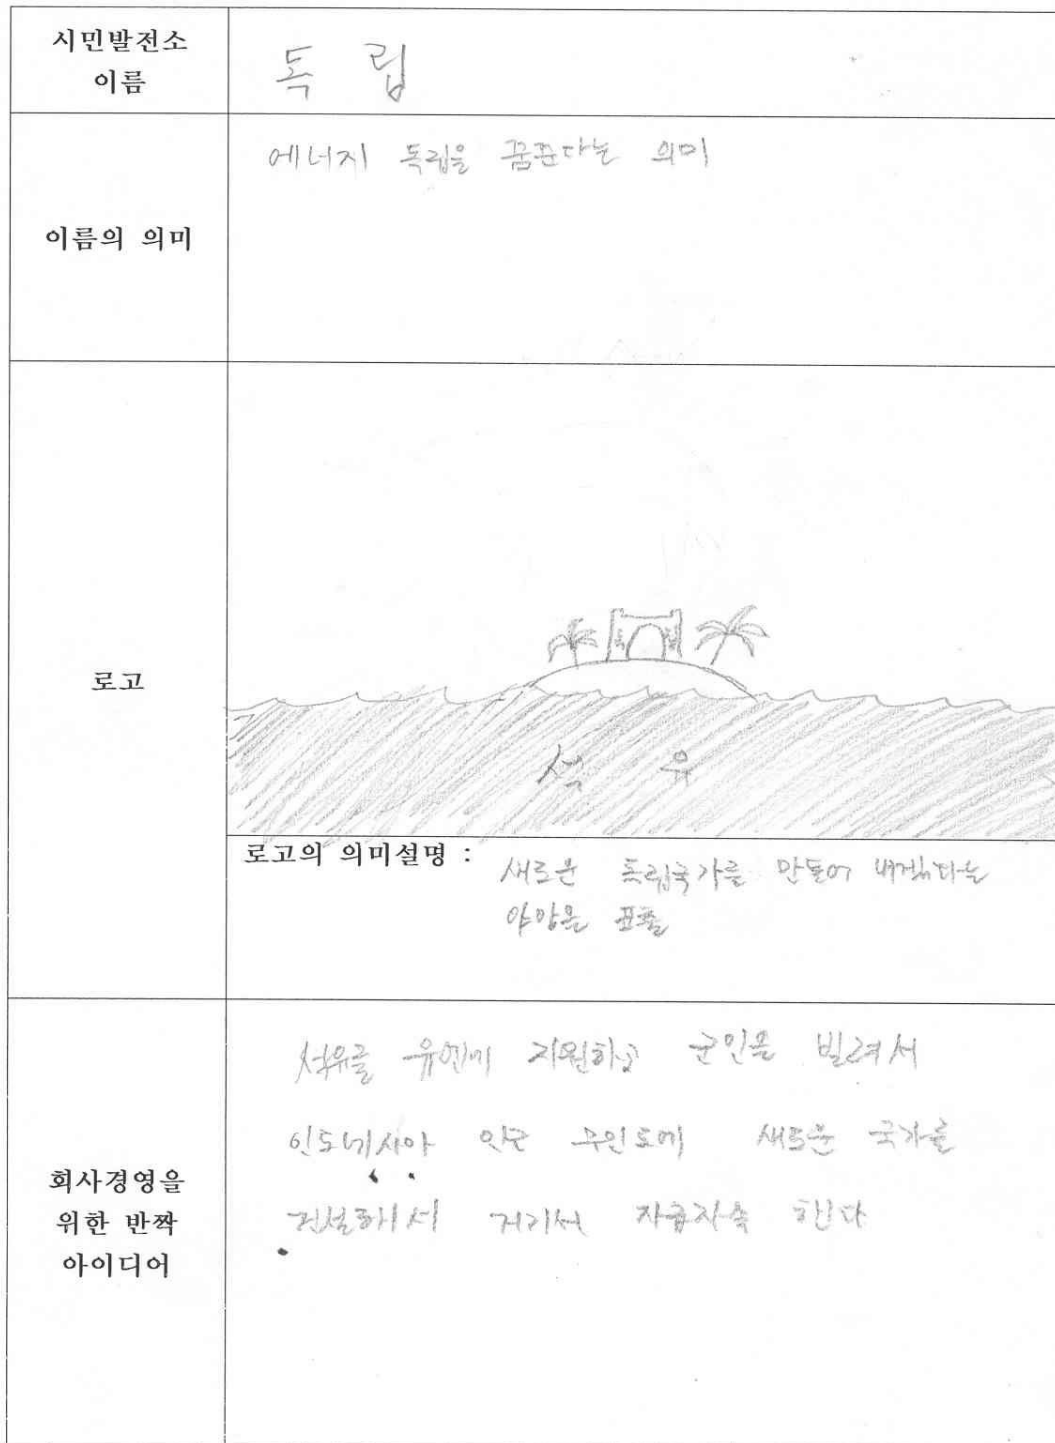 시민발전소
이름
독 립
이름의 의미
에너지 독립을 꿈꾼다는 의미
로고
석 유
로고의 의미설명 :
새로운 독립국가를 만들어 내겠다는
야망을 표출
회사경영을
위한 반짝
아이디어
석유를 유엔에 지원하고 군인을 빌려서
인도네시아 인근 무인도에 새로운 국가를
건설해서 거기서 자급자족 한다